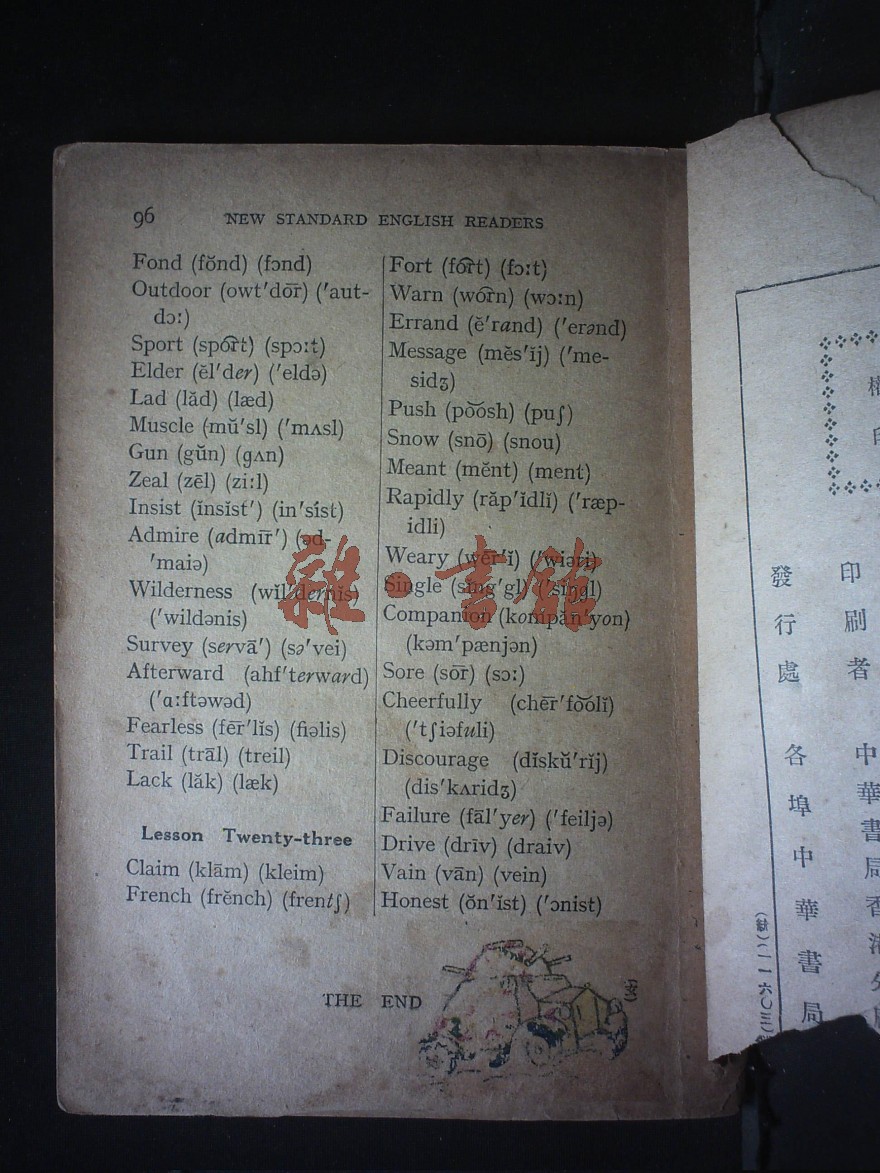 96 NEW STANDARD ENGLISH READERS
Fond (fŏnd) (fɔnd)
Outdoor (owt′dōr̄) (′aut-
dɔ:)
Sport (spôr̂t) (spɔ:t)
Elder (ĕl′der) (′eldə)
Lad (lăd) (læd)
Muscle (mŭ′sl) (′mʌsl)
Gun (gŭn) (gʌn)
Zeal (zēl) (zi:l)
Insist (ĭnsĭst′) (in′sist)
Admire (admīr̄′) (əd-
′maiə)
Wilderness (wĭl′dernĭs)
(′wildənis)
Survey (servā′) (sə′vei)
Afterward (ahf′terward)
(′ɑ:ftəwəd)
Fearless (fēr̄′lĭs) (fiəlis)
Trail (trāl) (treil)
Lack (lăk) (læk)
Lesson Twenty-three
Claim (klām) (kleim)
French (frĕnch) (frentʃ)
Fort (fôr̂t) (fɔ:t)
Warn (wôr̂n) (wɔ:n)
Errand (ĕ′rand) (′erənd)
Message (mĕs′ĭj) (′me-
sidʒ)
Push (po͝osh) (puʃ)
Snow (snō) (snou)
Meant (mĕnt) (ment)
Rapidly (răp′ĭdlĭ) (′ræp-
idli)
Weary (wēr̄′ĭ) (′wiəri)
Single (sĭng′gl) (′siŋgl)
Companion (kompăn′yon)
(kəm′pænjən)
Sore (sōr̄) (sɔ:)
Cheerfully (chēr̄′fo͝olĭ)
(′tʃiəfuli)
Discourage (dĭskŭ′rĭj)
(dis′kʌridʒ)
Failure (fāl′yer) (′feiljə)
Drive (drīv) (draiv)
Vain (vān) (vein)
Honest (ŏn′ĭst) (′ɔnist)
THE END
雜·書館
印刷者 中華書局香港
發行處 各埠中華書局
(一一六〇三)